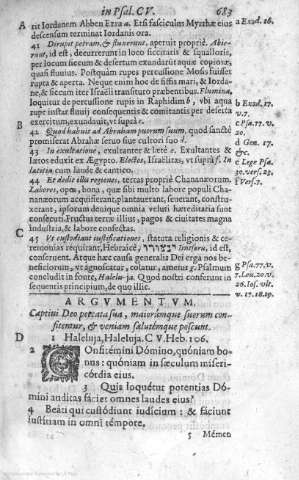 in Psal. CV. 683
A rit Iordanem Abben Ezra a. Etsi fasciculus Myrrhæ eius
descensum terminat Iordanis ora.
a Exod. 16.
41 Dirupit petram, & fluxerunt, aperuit proprie. Abie-
runt, id est, decurrerunt in loco siccitatis & squalloris,
per locum siccum & desertum exundarunt aquæ copiosæ,
quasi fluuius. Postquam rupes percussione Mosis fuisset
rupta & aperta. Neque enim hoc de fissis mari, & Iorda-
ne, & siccum iter Israeli transituro præbentibus. Flumina,
B loquitur de percussione rupis in Raphidim b, vbi aqua
b Exod. 17.
v. 7.
rupe iustar fluuij consequentis & comitantis per deserta
exercitum, exundauit, vt supra c.
c Psa. 77. v.
20.
42 Quod habuit ad Abraham puerum suum, quod sancte
promiserat Abrahæ seruo suo cultori suo d.
d Gen. 17.
43 In exultatione, exultantes & læte e. Exultantes &
lætos eduxit ex Ægypto. Electos, Israëlitas, vt supra f. In
lætitia cum laude & cantico.
e Lege Psa.
f Vers. 7.
44 Et dedit illis regiones, terras proprie Channanæorum.
Labores, opes, bona, quæ sibi multo labore populi Cha-
nanæorum acquisierant, plantauerant, seuerant, constru-
xerant, ipsorum denique omnia veluti hæreditaria sunt
consecuti. Fructus terræ illius, pagos & ciuitates magna
industria, & labore confectas.
C
45 Vt custodiant iustificationes, statuta religionis & ce-
remonias requirant, Hebraicè, ינצרו Ionseru, id est,
conseruent. Atque hæc causa generalis Dei erga nos be-
neficiorum, vt agnoscatur, colatur, ametur g. Psalmum
concludit in fonte, Halelu-ia. Quod nostri conferunt in
sequentis principium, de quo illic.
g Psa. 77. v.
7. Leu. 20. v.
26. Ios. vlt.
v. 17. 18. 19.
ARGVMENTVM.
Captiui Deo peccata sua, maiorúmque suorum con-
fitentur, & veniam salutémque poscunt.
D 1 Haleluja, Haleluja. CV. Heb. 106.
2 COnfitémini Dómino, quóniam bo-
nus: quóniam in sæculum miseri-
córdia eius.
3 Quis loquétur poténtias Dó-
mini auditas faciet omnes laudes eius?
4 Beáti qui custódiunt iudicium: & fáciunt
iustitiam in omni témpore.
5 Mémen